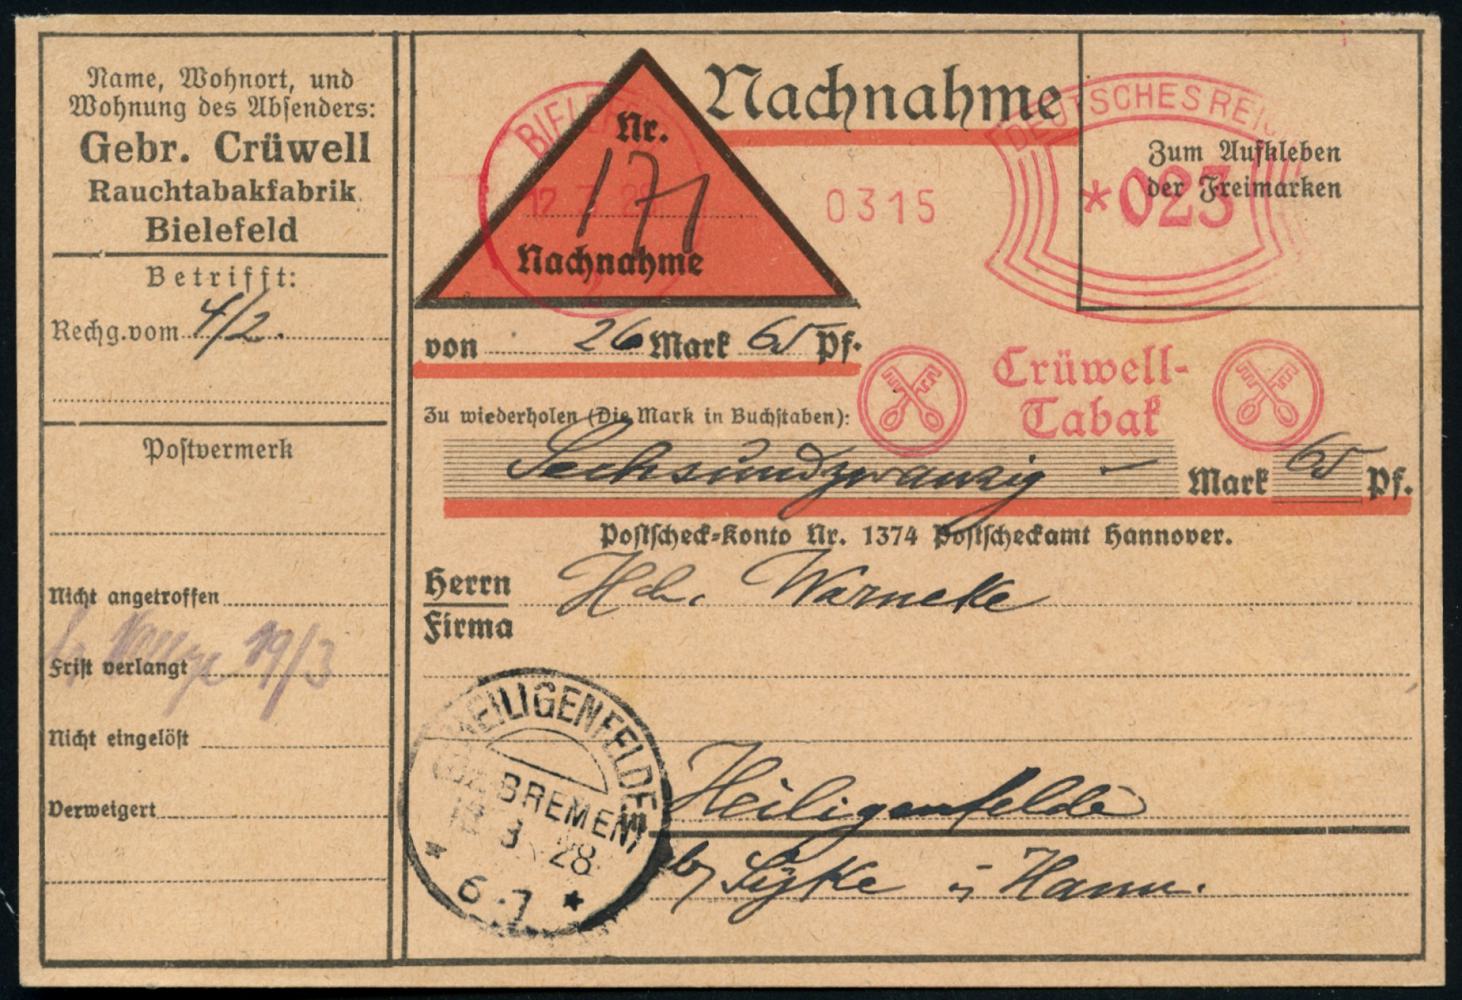 Name, Wohnort, und
Wohnung des Absenders:
Gebr. Crüwell
Rauchtabakfabrik
Bielefeld
Betrifft:
Rechg. vom 4/2.
Postvermerk
Nicht angetroffen
19/3
Frist verlangt
Nicht eingelöst
Verweigert
Nachnahme
DEUTSCHES REICH
Zum Aufkleben
der Freimarken
*023
0315
Nr.
171
Nachnahme
von 26 Mark 65 Pf.
Crüwell-
Tabak
Zu wiederholen (Die Mark in Buchstaben):
Sechsundzwanzig – Mark 65 Pf.
Postscheck-Konto Nr. 1374 Postscheckamt Hannover.
Herrn Hch. Warneke
Firma
HEILIGENFELDE
BREMEN
3 28
6-7
Heiligenfelde
b/ Syke i Hann.